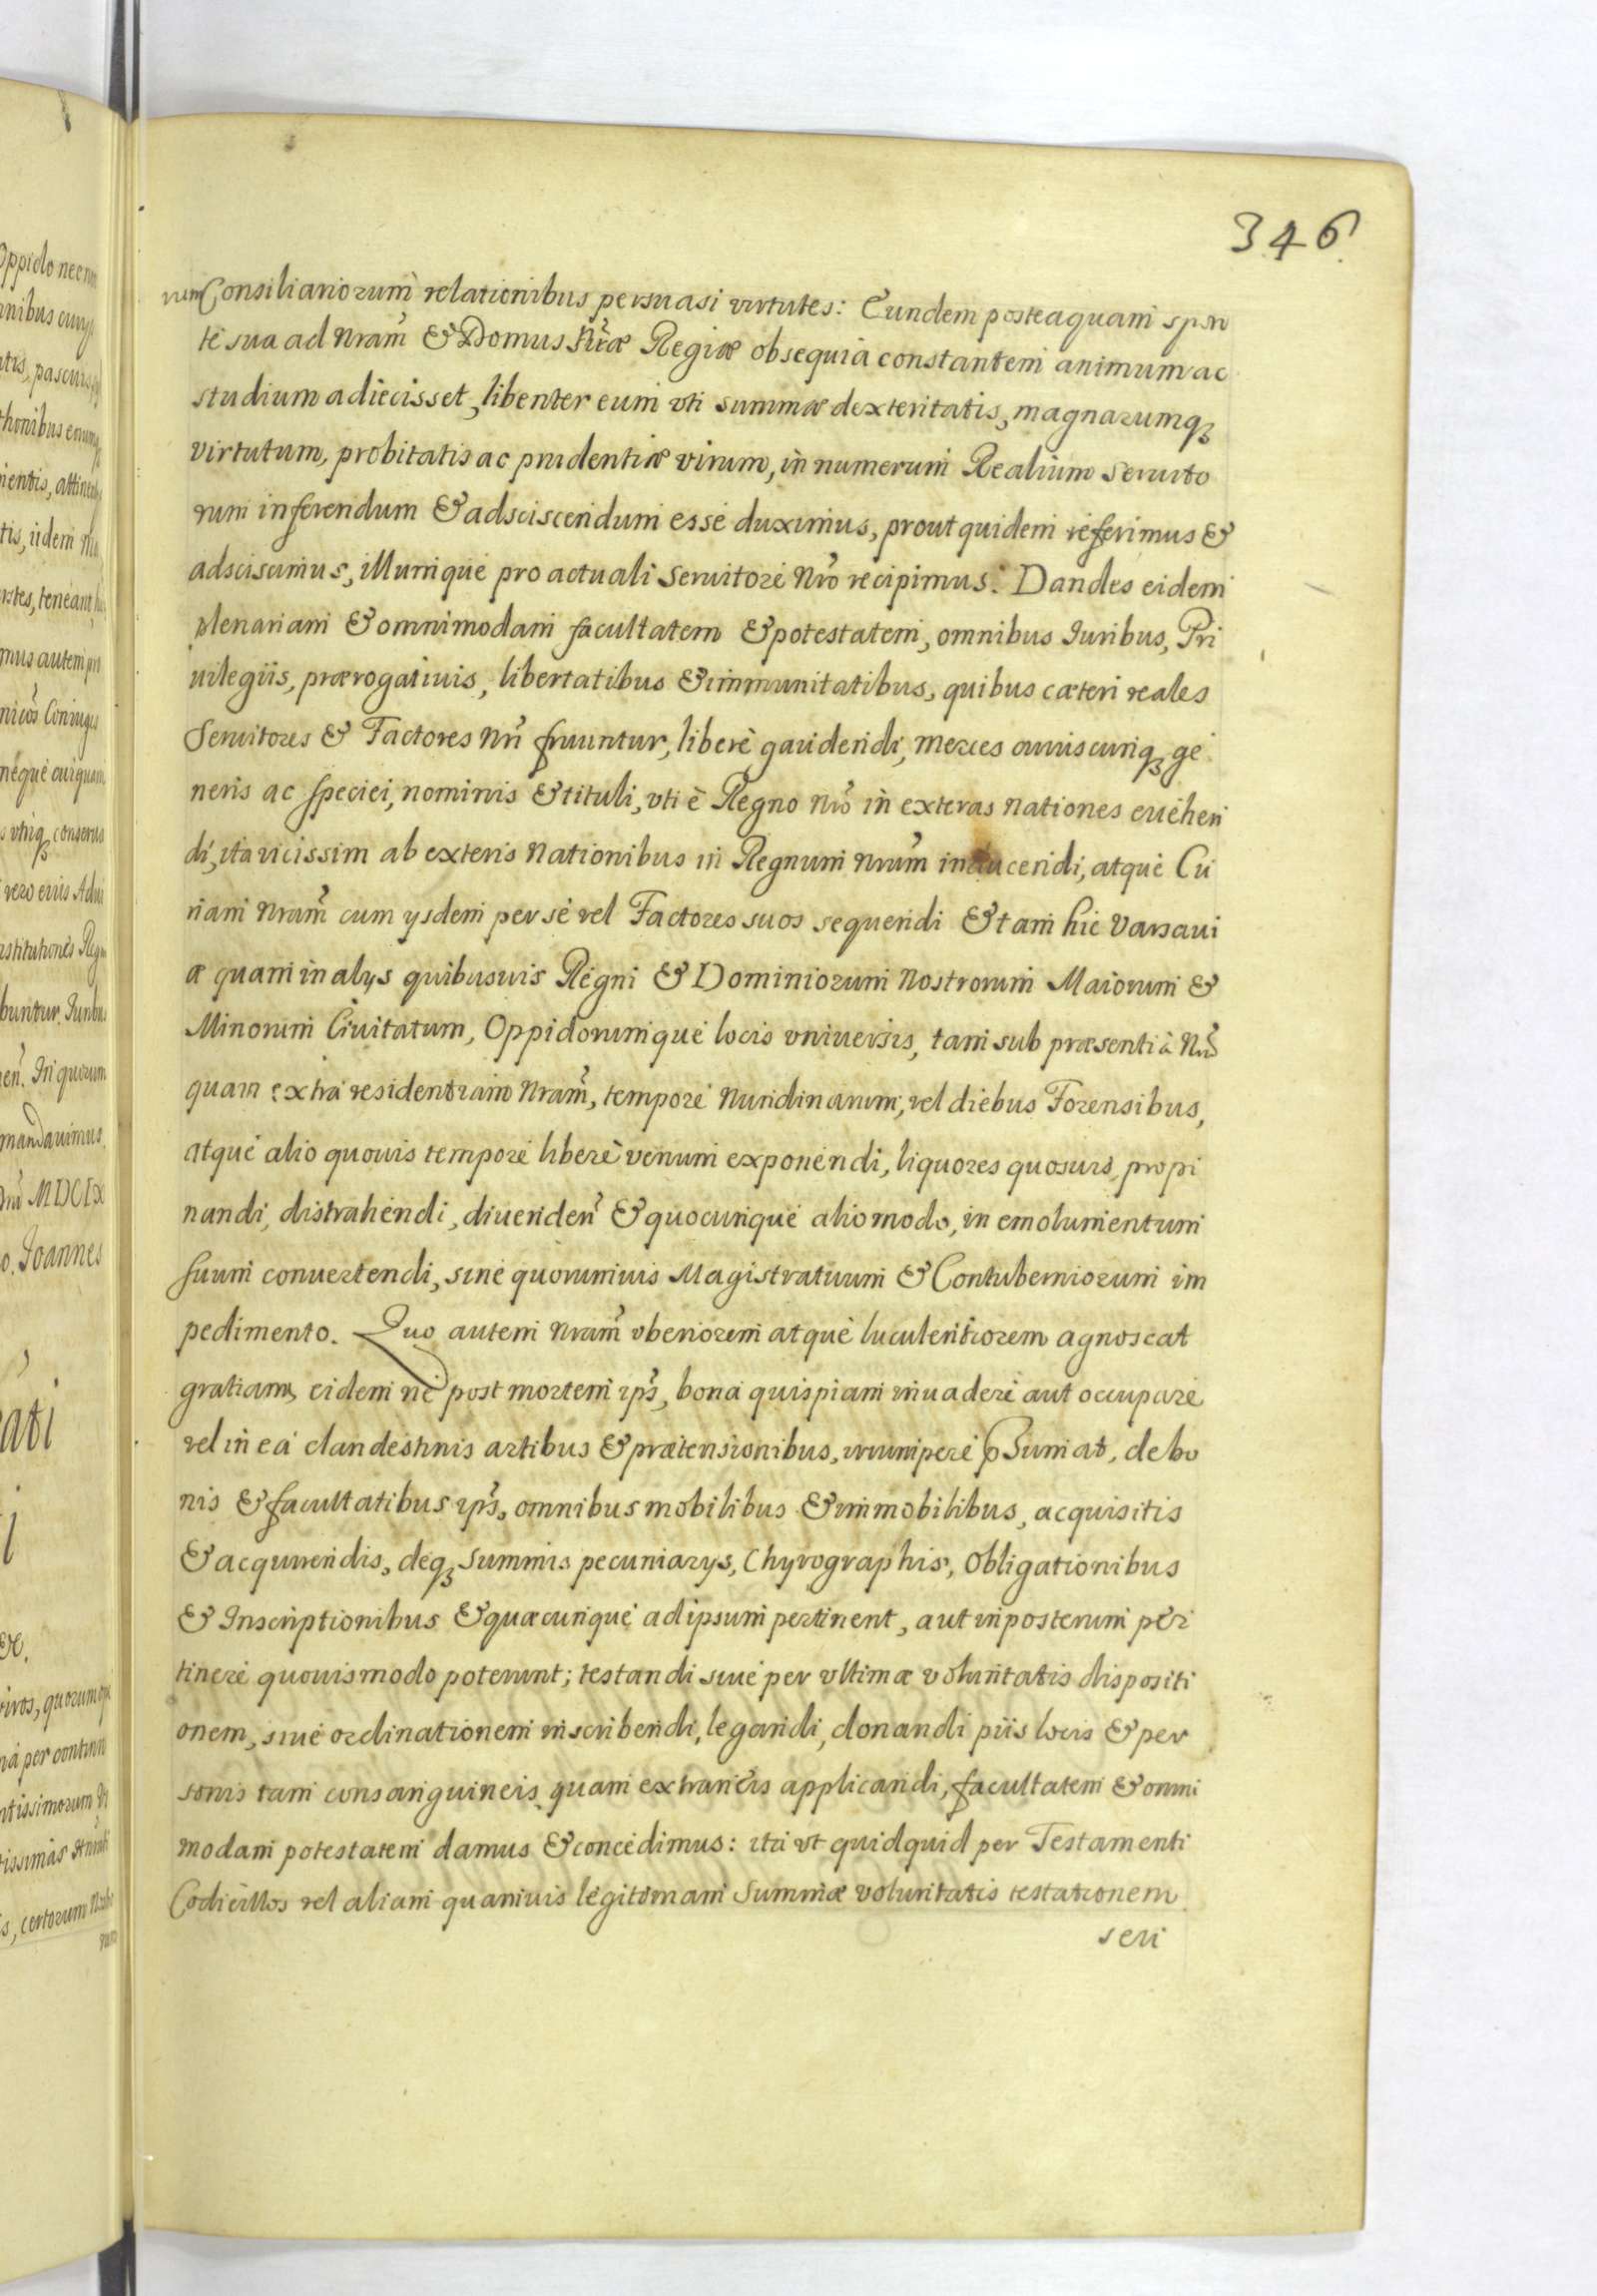 346
rum Consiliariorum relationibus persuasi virtutes: Eundem posteaquam spon
te sua ad nram̃ & Domus nr̃æ Regiæ obsequia constantem animum ac
studium adiecisset, libenter eum vti summæ dexteritatis, magnarumq3
virtutum, probitatis ac prudentiæ virum, in numerum Realium Seruito
rum inferendum & adsciscendum esse duximus, prout quidem referimus &
adsciscimus, illumque pro actuali Seruitore nrõ recipimus. Dandes eidem
plenariam & omnimodam facultatem & potestatem, omnibus Iuribus, Pri
uilegiis, prærogatiuis, libertatibus & immunitatibus, quibus cæteri reales
Seruitores & Factores nrĩ fruuntur, liberè gaudendi, merces cuiuscunq3 ge
neris ac speciei, nominis & tituli, vti è Regno nrõ in exteras nationes euehen
di, ita vicissim ab exteris nationibus in Regnum nrum̃ inducendi, atque Cu
riam nram̃ cum ysdem per se vel Factores suos sequendi & tam hic Varsaui
æ quam in alys quibusuis Regni & Dominiorum nostrorum Maiorum &
Minorum Ciuitatum, Oppidorumque locis vniuersis, tam sub præsentiâ nrã
quam extra residentiam nram̃, tempore nundinarum, vel diebus Forensibus,
atque alio quouis tempore liberè venum exponendi, liquores quosuis propi
nandi, distrahendi, diuenden̾ & quocunque alio modo, in emolumentum
suum conuertendi, sine quorumuis Magistratuum & Contuberniorum im
pedimento. Quo autem nram̃ vberiorem atque luculentiorem agnoscat
gratiam, eidem ne post mortem ips̾, bona quispiam inuadere aut occupare
vel in ea clandestinis artibus & prætensionibus, irrumpere p̱sumat, de bo
nis & facultatibus ips̾, omnibus mobilibus & immobilibus, acquisitis
& acquirendis, deq3 summis pecuniarys, Chyrographis, Obligationibus
& Inscriptionibus & quæcunque ad ipsum pertinent, aut inposterum per
tinere quouis modo poterunt; testandi siue per vltimæ voluntatis dispositi
onem, siue ordinationem inscribendi, legandi, donandi piis locis & per
sonis tam consanguineis quam extraneis applicandi, facultatem & omni
modam potestatem damus & concedimus: ita vt quidquid per Testamenti
Codicillos vel aliam quamuis legitimam summæ voluntatis testationem
seu